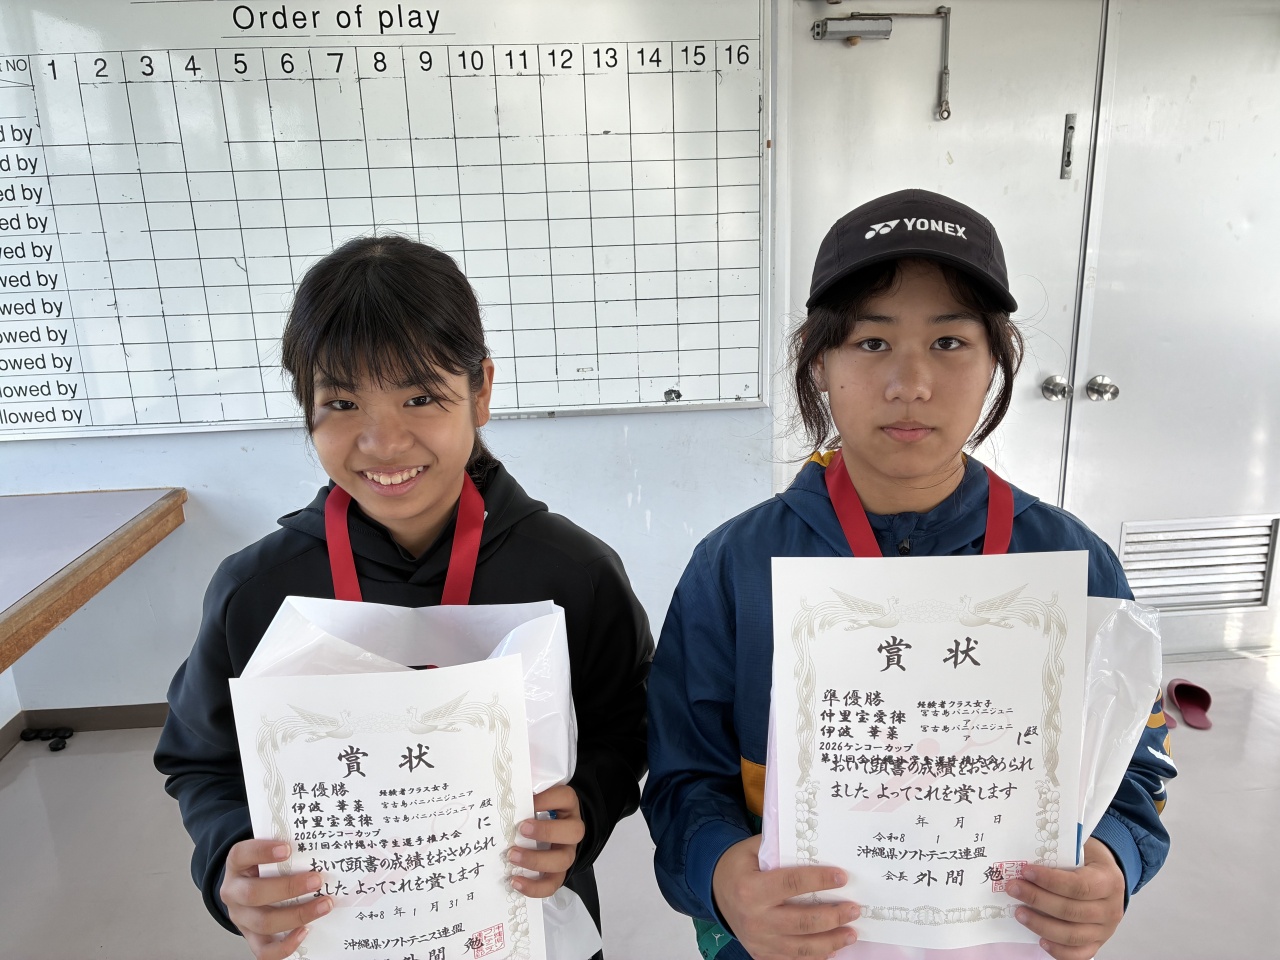 Order of play
NO 1 2 3 4 5 6 7 8 9 10 11 12 13 14 15 16
d by
d by
ed by
ed by
wed by
wed by
owed by
owed by
owed by
llowed by
llowed by
YONEX
賞状
準優勝 経験者クラス女子
伊波 華菜 宮古島バニバニジュニア
仲里宝愛徠 宮古島バニバニジュニア 殿
2026ケンコーカップ
第31回全沖縄小学生選手権大会 に
おいて頭書の成績をおさめられ
ました よってこれを賞します
令和8 年 1 月 31 日
沖縄県ソフトテニス連盟
外間 勉
賞状
準優勝 経験者クラス女子
仲里宝愛徠 宮古島バニバニジュニ
ア
伊波 華菜 宮古島バニバニジュニ
ア 殿
2026ケンコーカップ に
第31回全沖縄小学生選手権大会
おいて頭書の成績をおさめられ
ました よってこれを賞します
年 月 日
令和8 1 31
沖縄県ソフトテニス連盟
会長 外間 勉